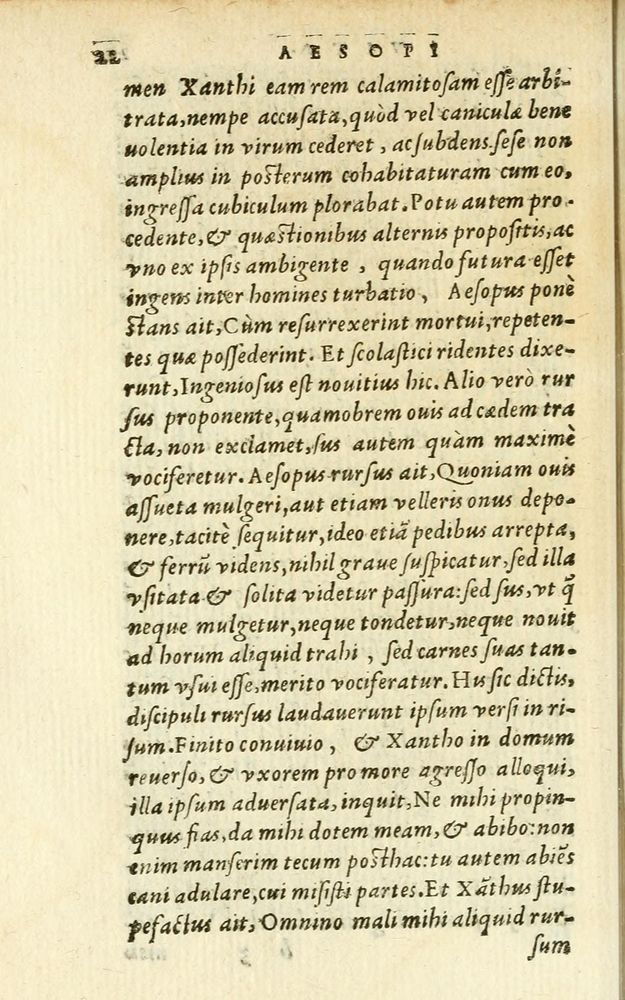 22 AESOPI
men Xanthi eam rem calamitosam esse arbi-
trata, nempe accusata, quòd vel caniculæ bene
uolentia in virum cederet, ac subdens. sese non
amplius in posterum cohabitaturam cum eo,
ingressa cubiculum plorabat. Potu autem pro-
cedente, & quæstionibus alternis propositis, ac
vno ex ipsis ambigente, quando futura esset
ingens inter homines turbatio, Aesopus ponè
stans ait, Cùm resurrexerint mortui, repeten-
tes quæ possederint. Et scolastici ridentes dixe-
runt, Ingeniosus est nouitius hic. Alio verò rur
sus proponente, quamobrem ouis ad cædem tra
cta, non exclamet, sus autem quàm maximè
vociferetur. Aesopus rursus ait, Quoniam ouis
assueta mulgeri, aut etiam velleris onus depo-
nere, tacitè sequitur, ideo etiā pedibus arrepta,
& ferrū videns, nihil graue suspicatur, sed illa
vsitata & solita videtur passura: sed sus, vt q̄
neque mulgetur, neque tondetur, neque nouit
ad horum aliquid trahi, sed carnes suas tan-
tum vsui esse, merito vociferatur. His sic dictis,
discipuli rursus laudauerunt ipsum versi in ri-
sum. Finito conuiuio, & Xantho in domum
reuerso, & vxorem pro more agresso alloqui,
illa ipsum aduersata, inquit, Ne mihi propin-
quus fias, da mihi dotem meam, & abibo: non
enim manserim tecum posthac: tu autem abiēs
cani adulare, cui misisti partes. Et Xāthus stu-
pefactus ait, Omnino mali mihi aliquid rur-
sum